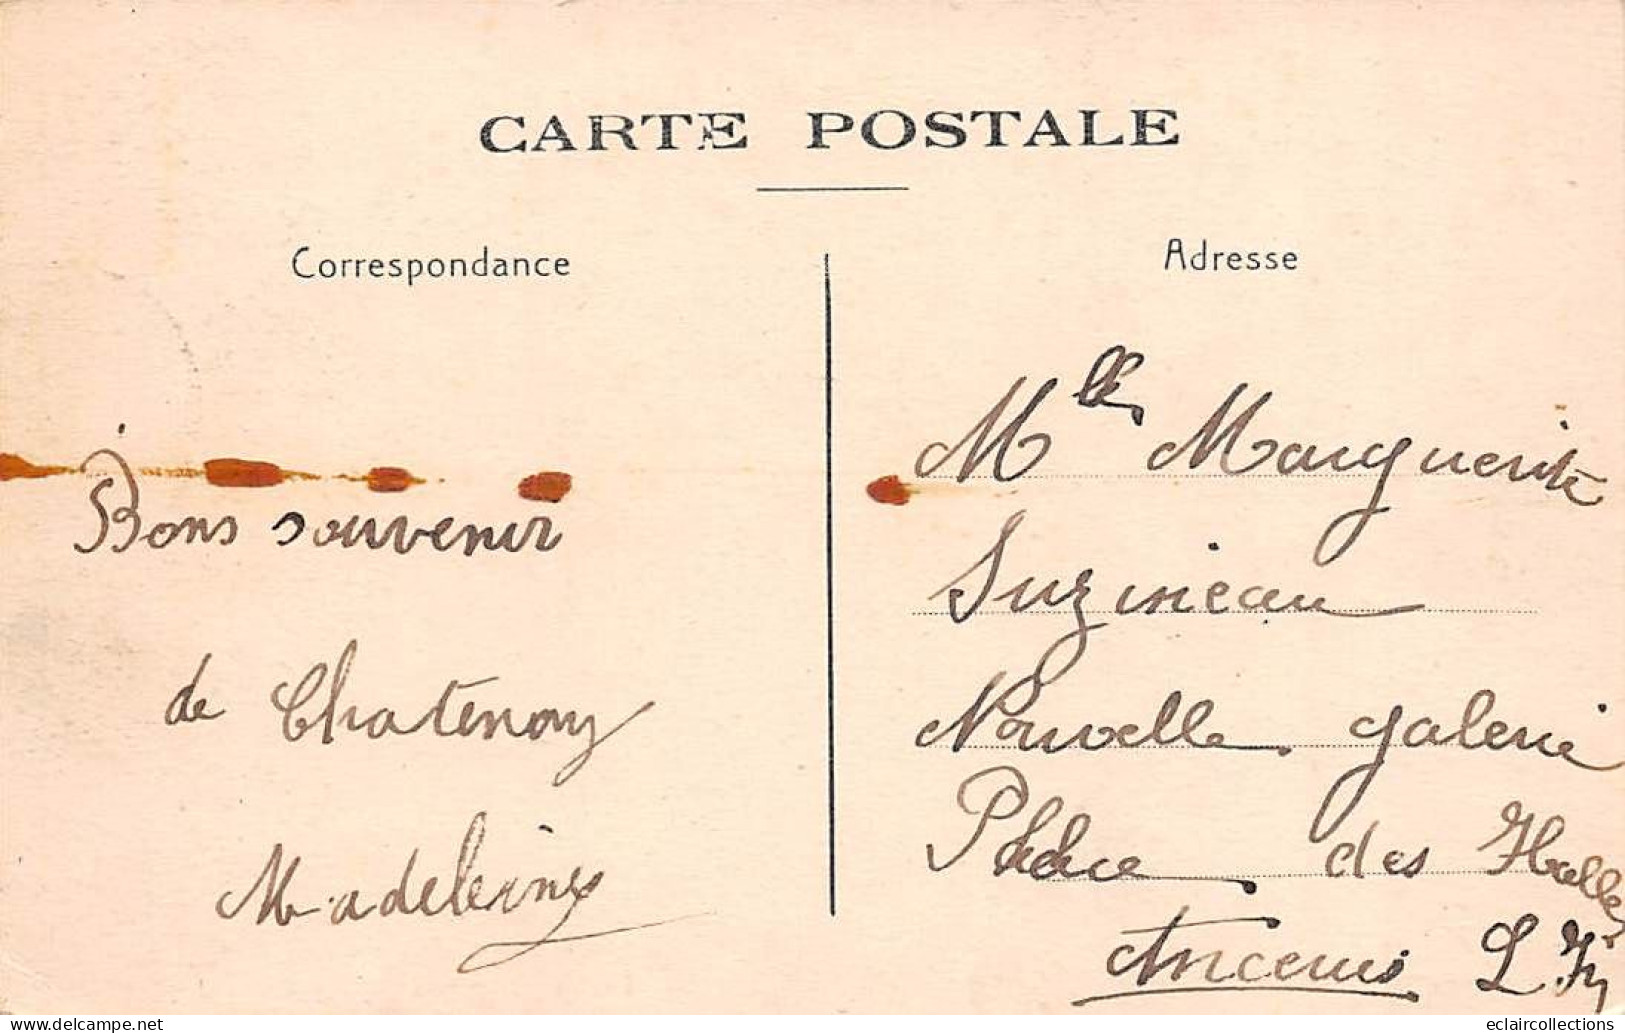 CARTE POSTALE
Correspondance
Adresse
Bons souvenir
de Chatenay
Madeleine
Mlle Marguerite
Suzineau
Nouvelle galerie
Place des Halles
Ancenis L. In
eclaircollections